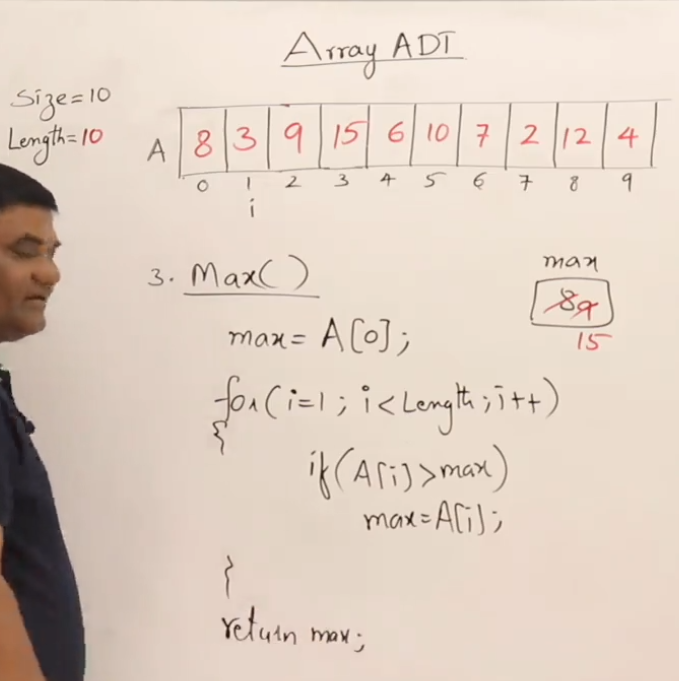 Array ADT
Size=10
Length=10
A 8 3 9 15 6 10 7 2 12 4
0 1 2 3 4 5 6 7 8 9
i
3. Max()
max
89
15
max= A[0];
for(i=1; i<Length; i++)
{
if(A[i]>max)
max=A[i];
}
return max;